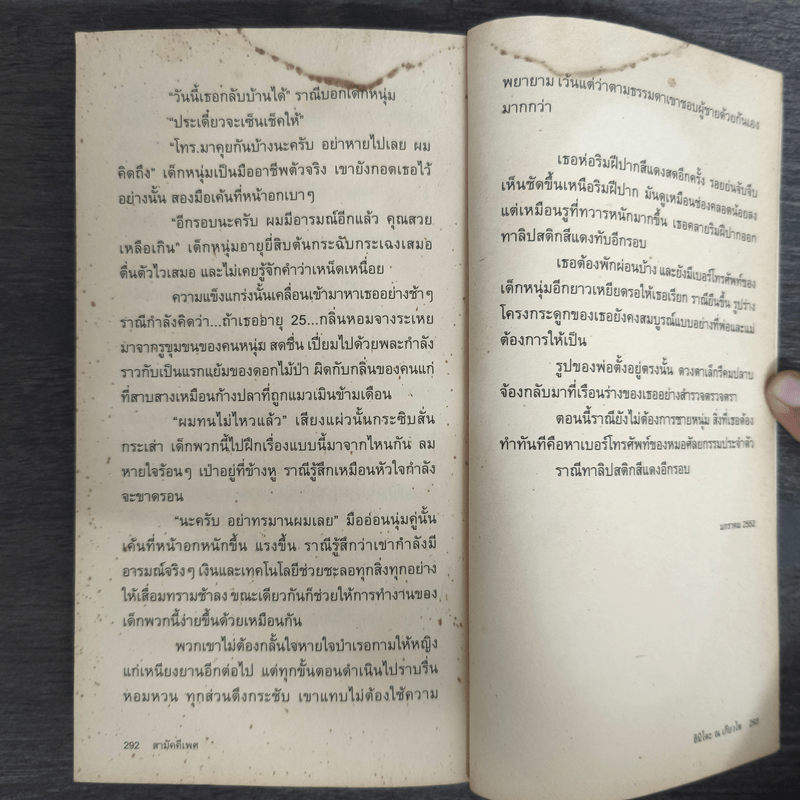 “วันนี้เธอกลับบ้านได้” ราณีบอกเด็กหนุ่ม
“ประเดี๋ยวจะเซ็นเช็คให้”
“โทร.มาคุยกันบ้างนะครับ อย่าหายไปเลย ผม
คิดถึง” เด็กหนุ่มเป็นมืออาชีพตัวจริง เขายังกอดเธอไว้
อย่างนั้น สองมือเค้นที่หน้าอกเบาๆ
“อีกรอบนะครับ ผมมีอารมณ์อีกแล้ว คุณสวย
เหลือเกิน” เด็กหนุ่มอายุยี่สิบต้นกระฉับกระเฉงเสมอ
ตื่นตัวไวเสมอ และไม่เคยรู้จักคำว่าเหน็ดเหนื่อย
ความแข็งแกร่งนั้นเคลื่อนเข้ามาหาเธออย่างช้าๆ
ราณีกำลังคิดว่า...ถ้าเธออายุ 25...กลิ่นหอมจางระเหย
มาจากรูขุมขนของคนหนุ่ม สดชื่น เปี่ยมไปด้วยพละกำลัง
ราวกับเป็นแรกแย้มของดอกไม้ป่า ผิดกับกลิ่นของคนแก่
ที่สาบสางเหมือนก้างปลาที่ถูกแมวเมินข้ามเดือน
“ผมทนไม่ไหวแล้ว” เสียงแผ่วนั้นกระซิบสั่น
กระเส่า เด็กพวกนี้ไปฝึกเรื่องแบบนี้มาจากไหนกัน ลม
หายใจร้อนๆ เป่าอยู่ที่ข้างหู ราณีรู้สึกเหมือนหัวใจกำลัง
จะขาดรอน
“นะครับ อย่าทรมานผมเลย” มืออ่อนนุ่มคู่นั้น
เค้นที่หน้าอกหนักขึ้น แรงขึ้น ราณีรู้สึกว่าเขากำลังมี
อารมณ์จริงๆ เงินและเทคโนโลยีช่วยชะลอทุกสิ่งทุกอย่าง
ให้เสื่อมทรามช้าลง ขณะเดียวกันก็ช่วยให้การทำงานของ
เด็กพวกนี้ง่ายขึ้นด้วยเหมือนกัน
พวกเขาไม่ต้องกลั้นใจหายใจบำเรอกามให้หญิง
แก่เหนียงยานอีกต่อไป แต่ทุกขั้นตอนดำเนินไปราบรื่น
หอมหวน ทุกส่วนตึงกระชับ เขาแทบไม่ต้องใช้ความ
292 สามัคคีเพศ
พยายาม เว้นแต่ว่าตามธรรมดาเขาชอบผู้ชายด้วยกันเอง
มากกว่า
เธอห่อริมฝีปากสีแดงสดอีกครั้ง รอยย่นจับจีบ
เห็นชัดขึ้นเหนือริมฝีปาก มันดูเหมือนช่องคลอดน้อยลง
แต่เหมือนรูที่ทวารหนักมากขึ้น เธอคลายริมฝีปากออก
ทาลิปสติกสีแดงทับอีกรอบ
เธอต้องพักผ่อนบ้าง และยังมีเบอร์โทรศัพท์ของ
เด็กหนุ่มอีกยาวเหยียดรอให้เธอเรียก ราณียืนขึ้น รูปร่าง
โครงกระดูกของเธอยังคงสมบูรณ์แบบอย่างที่พ่อและแม่
ต้องการให้เป็น
รูปของพ่อตั้งอยู่ตรงนั้น ดวงตาเล็กรีคมปลาบ
จ้องกลับมาที่เรือนร่างของเธออย่างสำรวจตรวจตรา
ตอนนี้ราณียังไม่ต้องการชายหนุ่ม สิ่งที่เธอต้อง
ทำทันทีคือหาเบอร์โทรศัพท์ของหมอศัลยกรรมประจำตัว
ราณีทาลิปสติกสีแดงอีกรอบ
มกราคม 2552
ฮิมิโตะ ณ เกียวโต 293